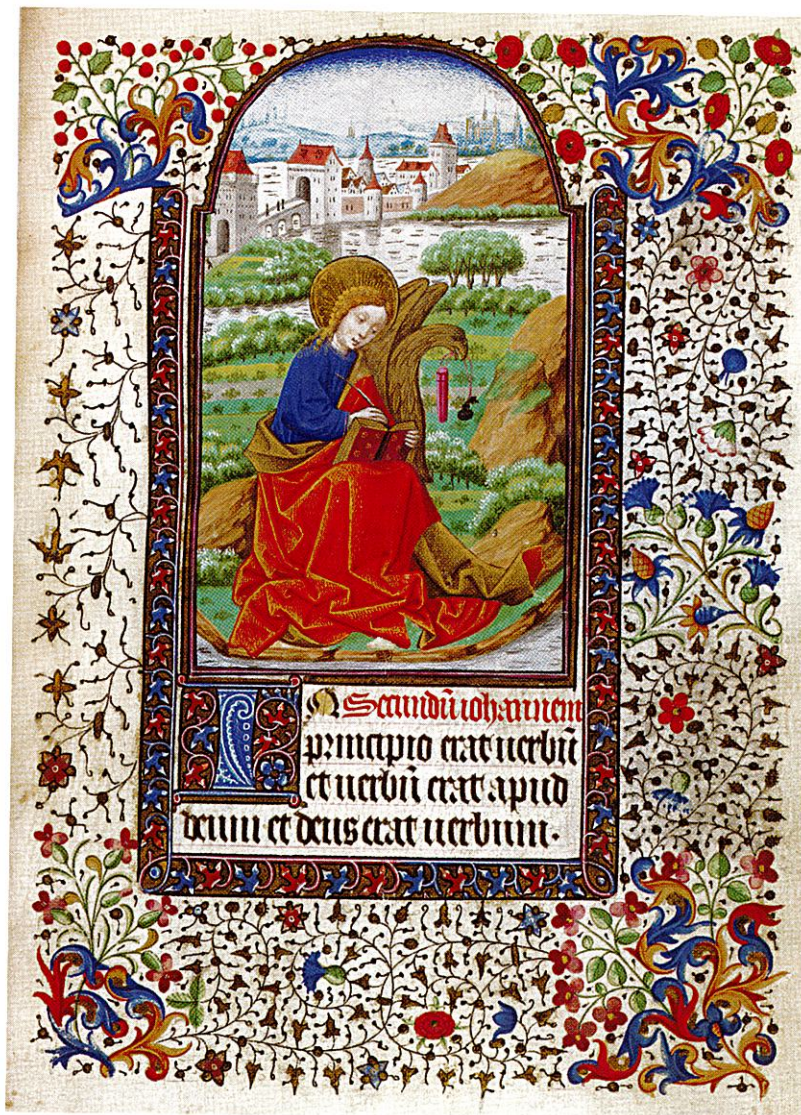 Secundū iohannem
IN principio erat uerbū
et uerbū erat apud
deum et deus erat uerbum·